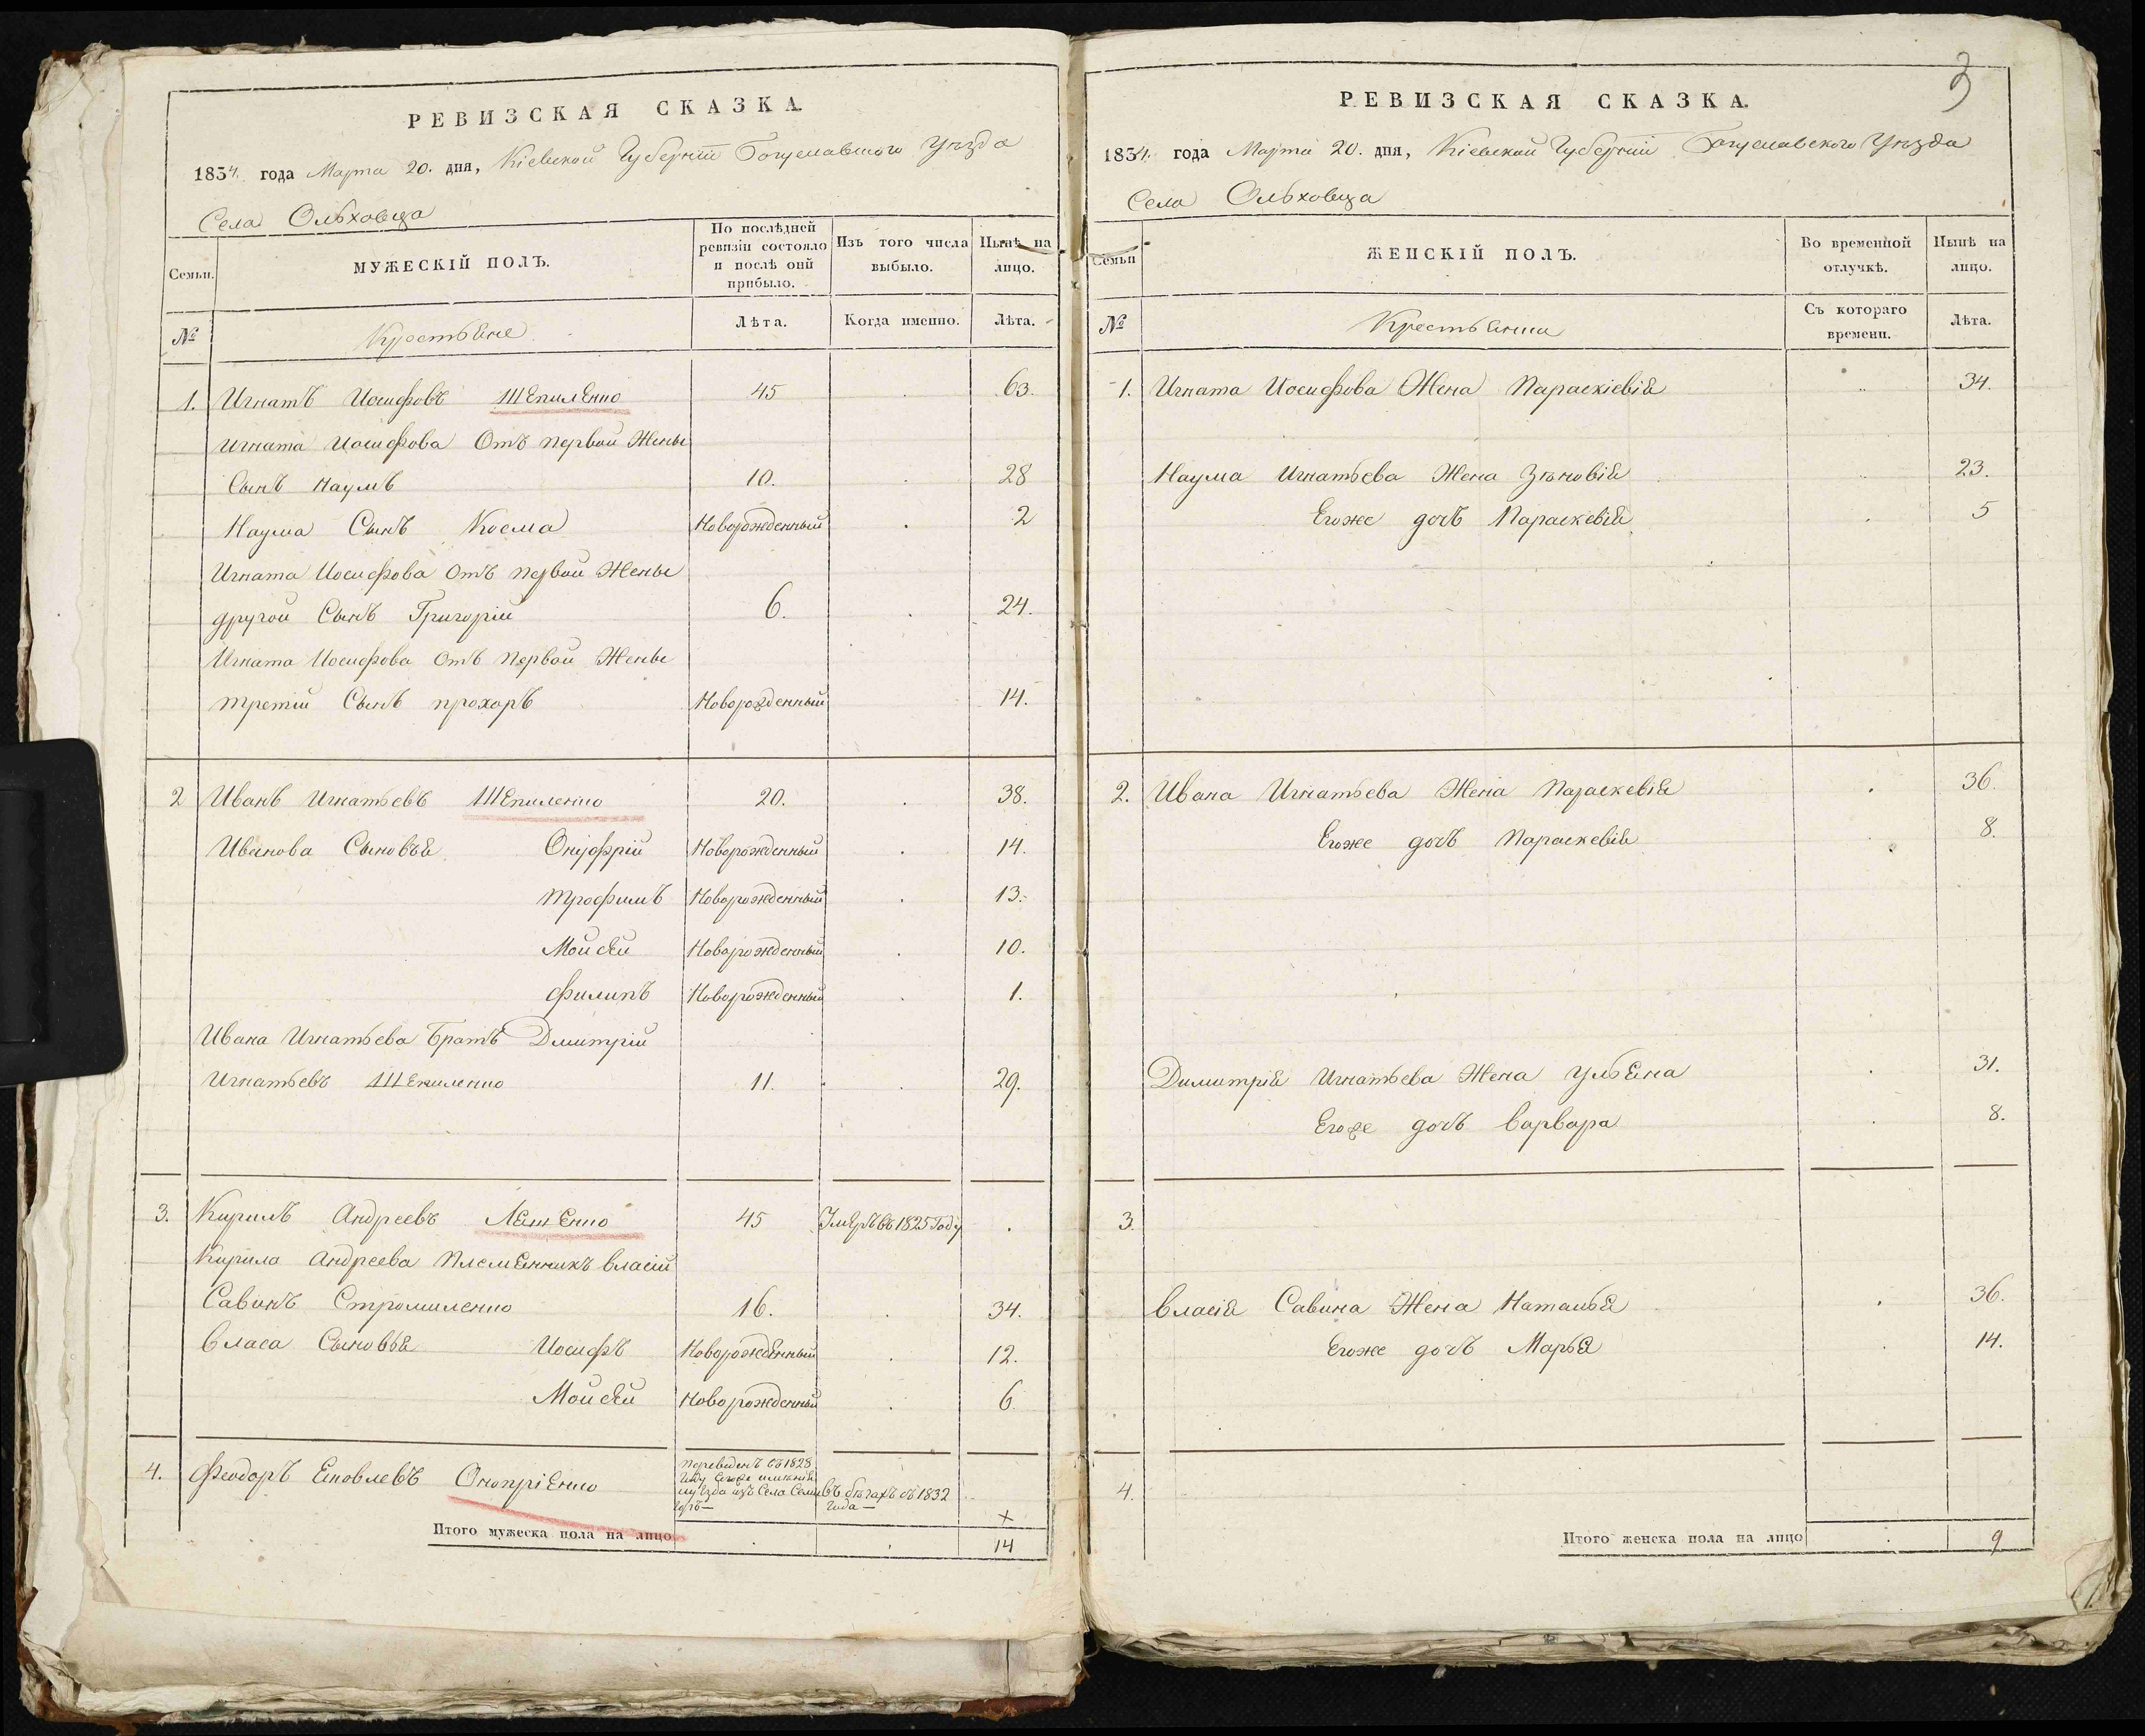 РЕВИЗСКАЯ СКАЗКА.
1834. года Марта 20. дня, Кіевской Губерніи Богуславского Уѣзда
Села Ольховца
Семьи.
МУЖЕСКІЙ ПОЛЪ.
По послѣдней ревизіи состояло и послѣ оній прибыло.
Изъ того числа выбыло.
Нынѣ на лицо.
№
Крестьяне
Лѣта.
Когда именно.
Лѣта.
1. Игнатъ Иосифовъ Шепиленко 45 63.
Игната Иосифова Отъ первой Жены
Сынъ Наумъ 10. 28
Наума Сынъ Косма Новорожденный 2
Игната Иосифова Отъ первой Жены
другой Сынъ Григорій 6. 24.
Игната Иосифова Отъ первой Жены
третій Сынъ прохоръ Новорожденный 14.
2 Иванъ Игнатьевъ Шепиленко 20. 38.
Иванова Сыновья Онуфрій Новорожденный 14.
Трофимъ Новорожденный 13.
Мойсей Новорожденный 10.
Филипъ Новорожденный 1.
Ивана Игнатьева Братъ Дмитрій
Игнатьевъ Шепиленко 11. 29.
3. Кирилъ Андреевъ Лященко 45 Умеръ въ 1825 Году
Кирила Андреева Племянникъ власій
Савинъ Стромиленко 16. 34.
Власа Сыновья Иосифъ Новорожденный 12.
Мойсей Новорожденный 6.
4. Феодоръ Яковлевъ Оноприенко переведенъ въ 1828 въ бѣгахъ съ 1832
года — ×
Итого мужеска пола на лицо 14
3
РЕВИЗСКАЯ СКАЗКА.
1834. года Марта 20. дня, Кіевской Губерніи Богуславского Уѣзда
Села Ольховца
Семьи
ЖЕНСКІЙ ПОЛЪ.
Во временной отлучкѣ.
Нынѣ на лицо.
№
Крестьянки
Съ котораго времени.
Лѣта.
1. Игната Иосифова Жена Параскіевія 34.
Наума Игнатьева Жена Зѣновія 23.
Егоже дочь Параскевія 5
2. Ивана Игнатьева Жена Параскевія 36.
Егоже дочь Параскевія 8.
Димитрія Игнатьева Жена Ульяна 31.
Егоже дочь Варвара 8.
3.
Власія Савина Жена Наталья 36.
Егоже дочь Марья 14.
4.
Итого женска пола на лицо 9